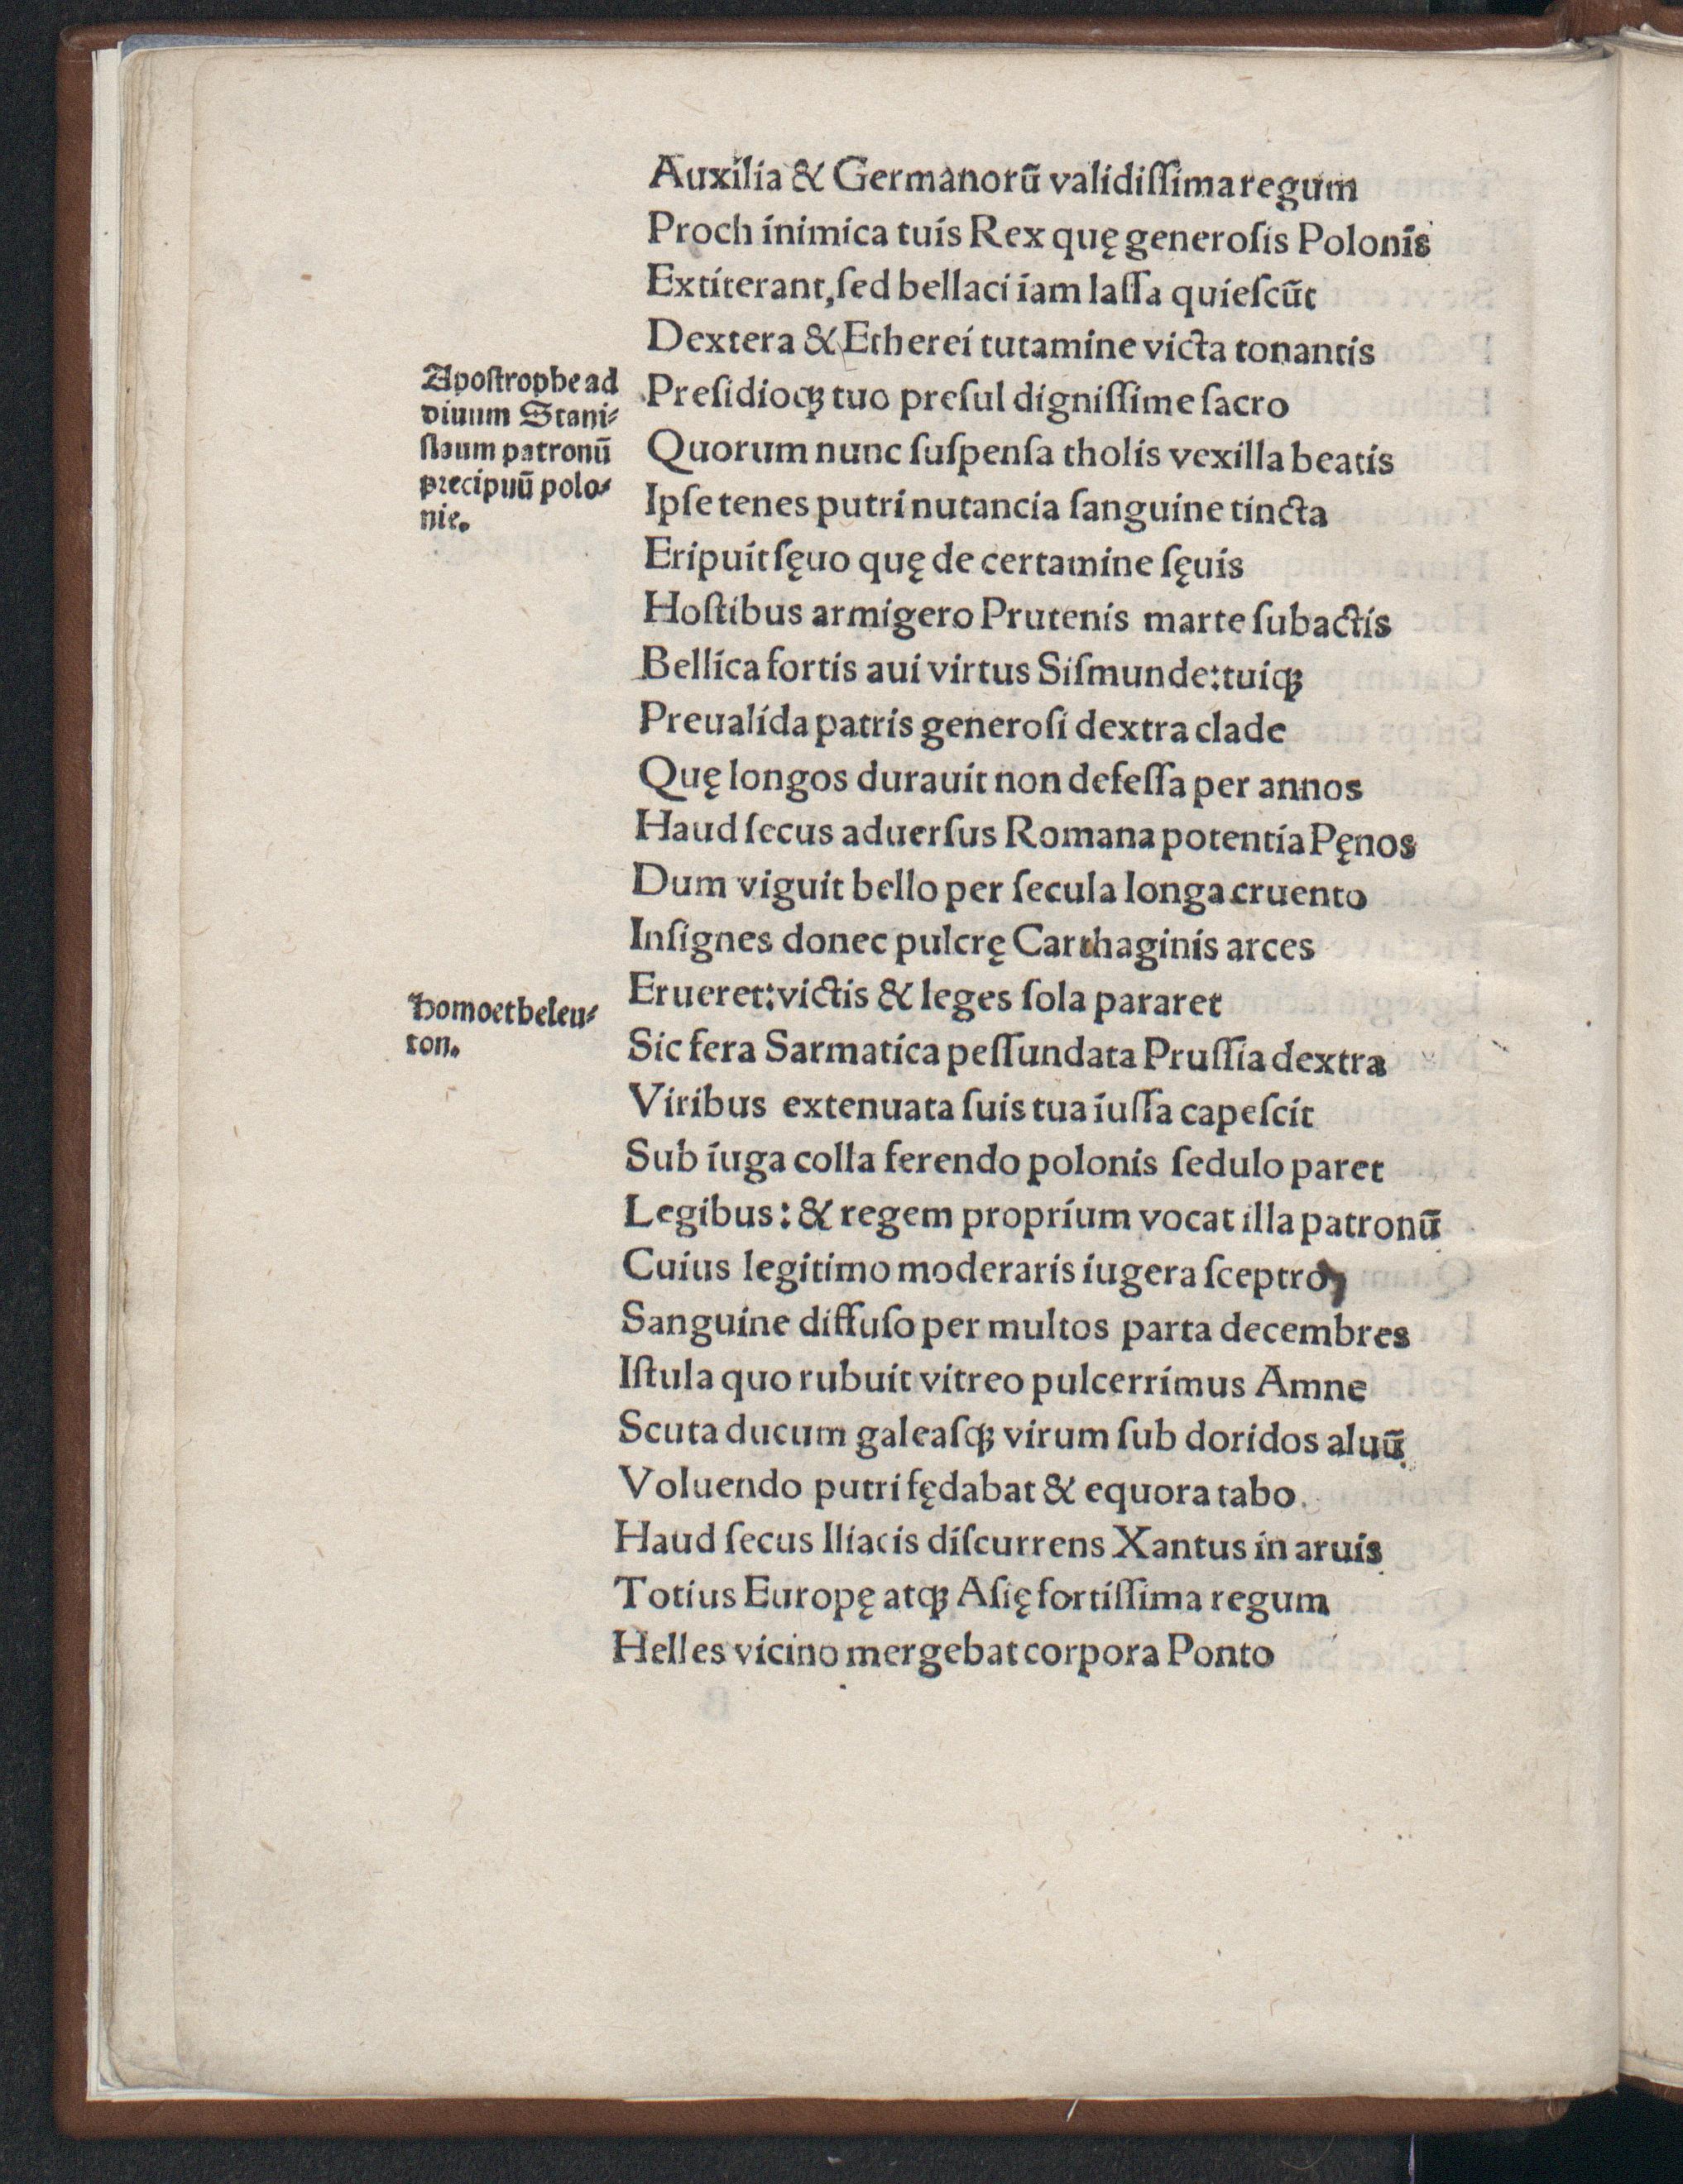 Auxilia & Germanorū validiſſima regum
Proch inimica tuis Rex quę generoſis Polonis
Extiterant, ſed bellaci iam laſſa quieſcūt
Dextera & Etherei tutamine victa tonantis
Apoſtrophe ad
diuum Stani⸗
ſlaum patronū
precipuū polo⸗
nie.
Preſidioqꝫ tuo preſul digniſſime ſacro
Quorum nunc ſuſpenſa tholis vexilla beatis
Ipſe tenes putri nutancia ſanguine tincta
Eripuit ſęuo quę de certamine ſęuis
Hoſtibus armigero Prutenis marte ſubactis
Bellica fortis aui virtus Siſmunde: tuiqꝫ
Preualida patris generoſi dextra clade
Quę longos durauit non defeſſa per annos
Haud ſecus aduerſus Romana potentia Pęnos
Dum viguit bello per ſecula longa cruento
Inſignes donec pulcrę Carthaginis arces
Erueret: victis & leges ſola pararet
Homoetheleu⸗
ton.
Sic fera Sarmatica peſſundata Pruſſia dextra
Viribus extenuata ſuis tua iuſſa capeſcit
Sub iuga colla ferendo polonis ſedulo paret
Legibus: & regem proprium vocat illa patronū
Cuius legitimo moderaris iugera ſceptro,
Sanguine diffuſo per multos parta decembres
Iſtula quo rubuit vitreo pulcerrimus Amne
Scuta ducum galeaſqꝫ virum ſub doridos aluū
Voluendo putri fędabat & equora tabo.
Haud ſecus Iliacis diſcurrens Xantus in aruis
Totius Europę atqꝫ Aſię fortiſſima regum
Helles vicino mergebat corpora Ponto